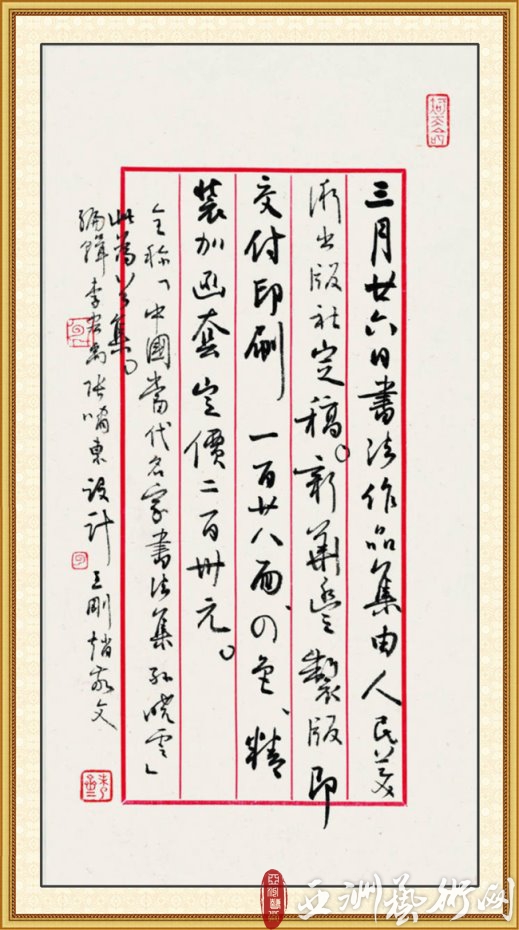 三月廿六日書法作品集由人民美
術出版社定稿。新華豐製版即
交付印刷一百廿八面、四色、精
裝加函套定價二百卅元。
全称「中國當代名家書法集孫曉雲」
此為公集。
編輯李宏禹張嘯東設計王剛趙家文
亞洲藝術网